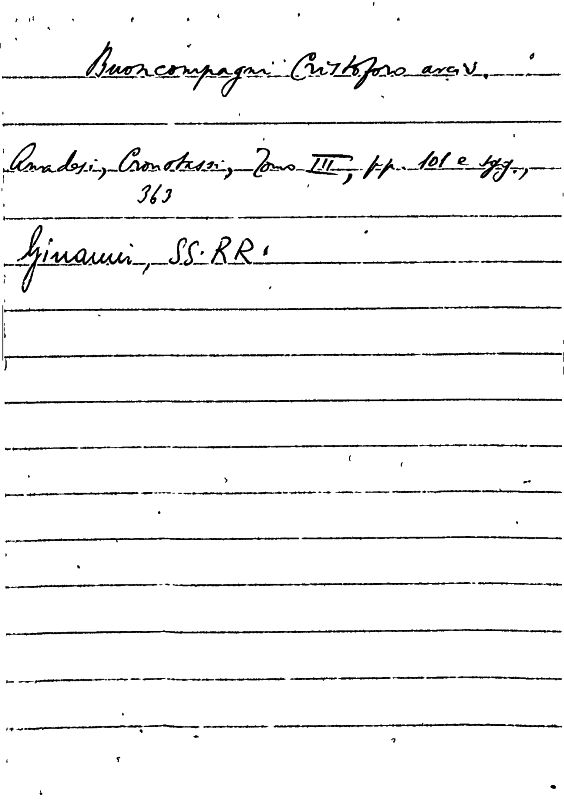 Buoncompagni Cristoforo arciv.
Amadesi, Cronotassi, Tomo III, pp. 101 e sgg.,
363
Ginanni, SS. RR.